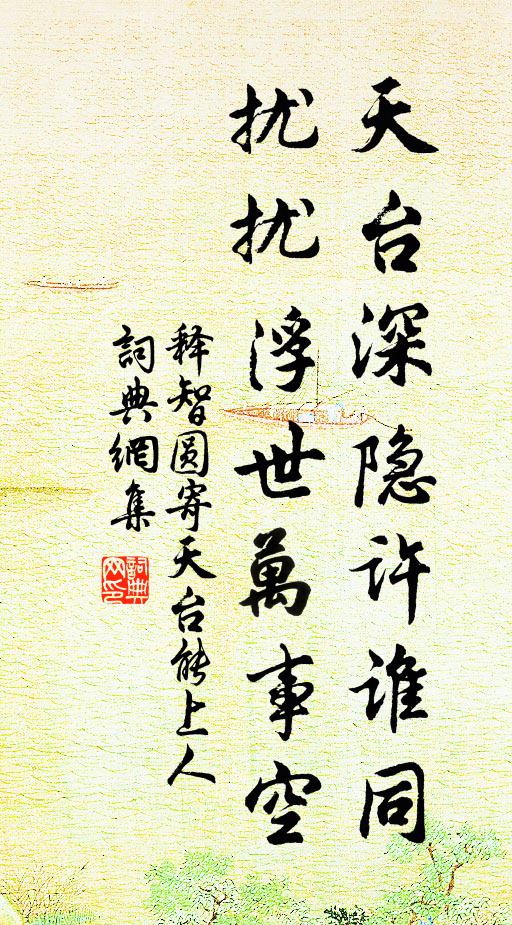 天台深隐许谁同
扰扰浮世萬事空
释智圆寄天台能上人
詞典網集
詞典网印